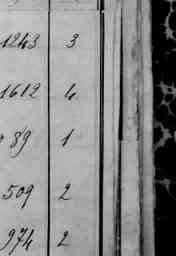 1243 3
1612 4
89 1
509 2
974 2